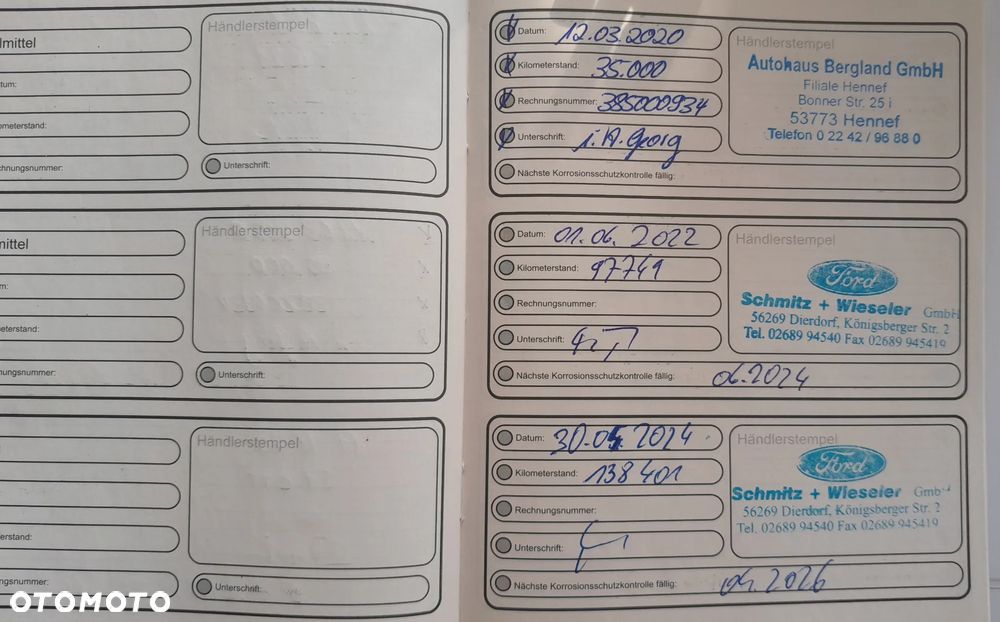 lmittel
tum:
ometerstand:
chnungsnummer:
Händlerstempel
Unterschrift:
mittel
m:
eterstand:
nungsnummer:
Händlerstempel
Unterschrift:
erstand:
ngsnummer:
Händlerstempel
Unterschrift:
Datum: 12.03.2020
Kilometerstand: 35.000
Rechnungsnummer: 385000934
Unterschrift: i.A. Georg
Nächste Korrosionsschutzkontrolle fällig:
Händlerstempel
Autohaus Bergland GmbH
Filiale Hennef
Bonner Str. 25 i
53773 Hennef
Telefon 0 22 42 / 96 88 0
Datum: 01.06.2022
Kilometerstand: 97749
Rechnungsnummer:
Unterschrift:
Nächste Korrosionsschutzkontrolle fällig: 06.2024
Händlerstempel
Ford
Schmitz + Wieseler GmbH
56269 Dierdorf, Königsberger Str. 2
Tel. 02689 94540 Fax 02689 945419
Datum: 30.05.2024
Kilometerstand: 138401
Rechnungsnummer:
Unterschrift:
Nächste Korrosionsschutzkontrolle fällig: 04.2026
Händlerstempel
Ford
Schmitz + Wieseler Gmb
56269 Dierdorf, Königsberger Str. 2
Tel. 02689 94540 Fax 02689 945419
OTOMOTO